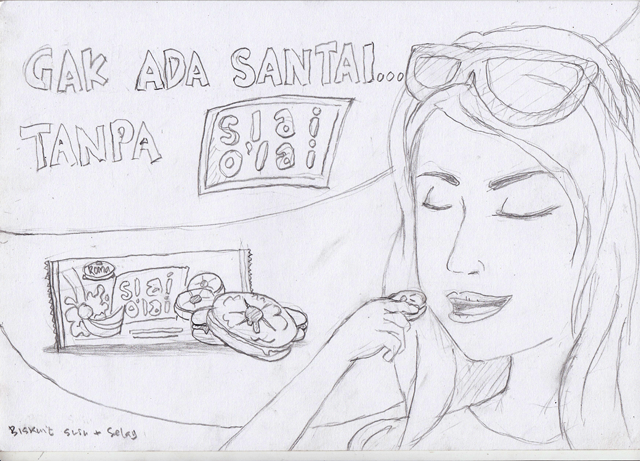 GAK ADA SANTAI...
TANPA
slai
o'lai
ROMA
slai
o'lai
Biskuit susu + Selai